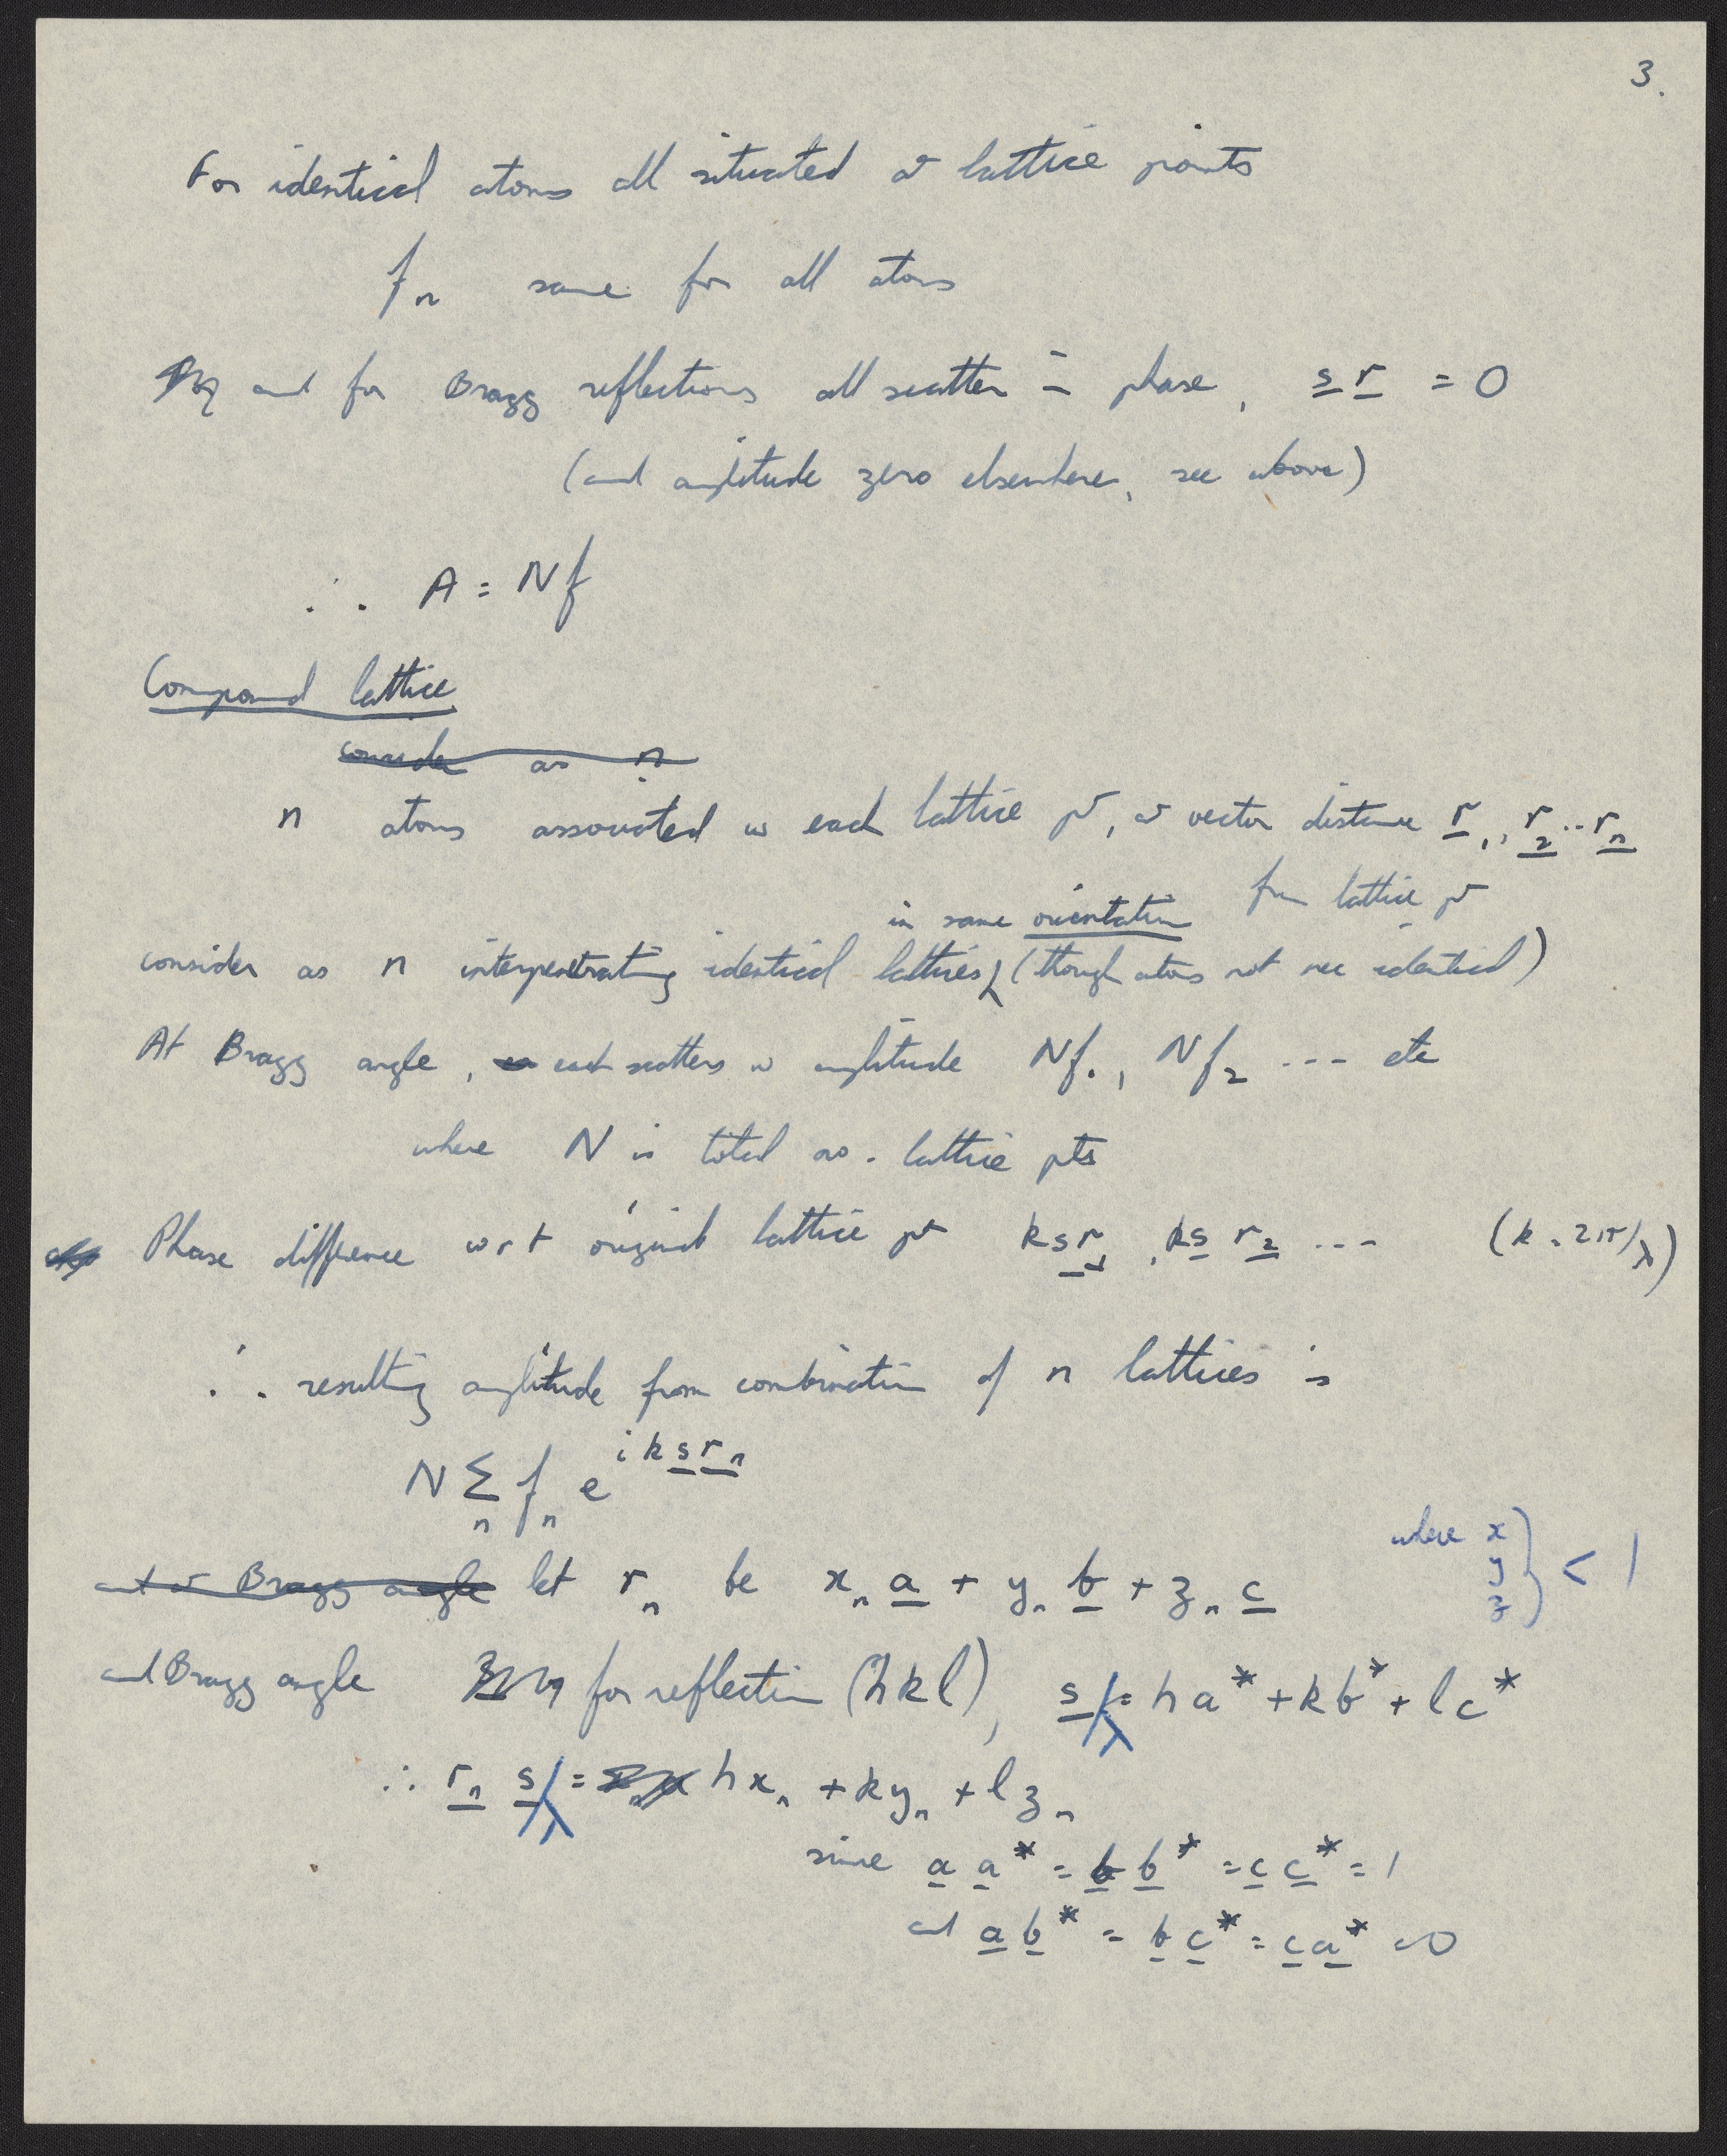 3.
For identical atoms all situated at lattice points
fn same for all atoms
and for Bragg reflections all scatter in phase, s r = 0
(and amplitude zero elsewhere, see above)
∴ A = Nf
Compound lattice
consider as n
n atoms associated w each lattice pt, at vector distance r1, r2 .. rn
from lattice pt
in same orientation
consider as n interpenetrating identical lattices (though atoms not nec identical)
At Bragg angle, each scatters w amplitude Nf1, Nf2 --- etc
where N is total no. lattice pts
Phase difference wrt original lattice pt k s r1, k s r2 --- (k = 2π/λ)
∴ resulting amplitude from combination of n lattices is
N Σn fn e^i k s rn
and at Bragg angle let rn be xn a + yn b + zn c where x y z } < 1
and Bragg angle for reflection (hkl), s/λ = ha* + kb* + lc*
∴ rn s/λ = hxn + kyn + lzn
since a a* = b b* = c c* = 1
and a b* = b c* = c a* = 0